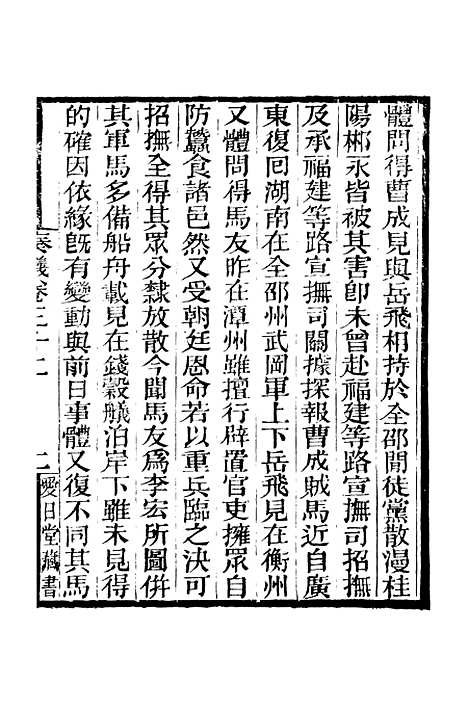 體問得曹成見與岳飛相持於全邵間徒黨散漫桂
陽郴永皆被其害卽未曾赴福建等路宣撫司招撫
及承福建等路宣撫司關據探報曹成賊馬近自廣
東復囘湖南在全邵州武岡軍上下岳飛見在衡州
又體問得馬友昨在潭州雖擅行辟置官吏擁眾自
防蠶食諸邑然又受朝廷恩命若以重兵臨之決可
招撫全得其眾分隸放散今聞馬友爲李宏所圖併
其軍馬多備船舟載見在錢穀艤泊岸下雖未見得
的確因依緣旣有變動與前日事體又復不同其馬
奏議卷三十二
二
愛日堂藏書